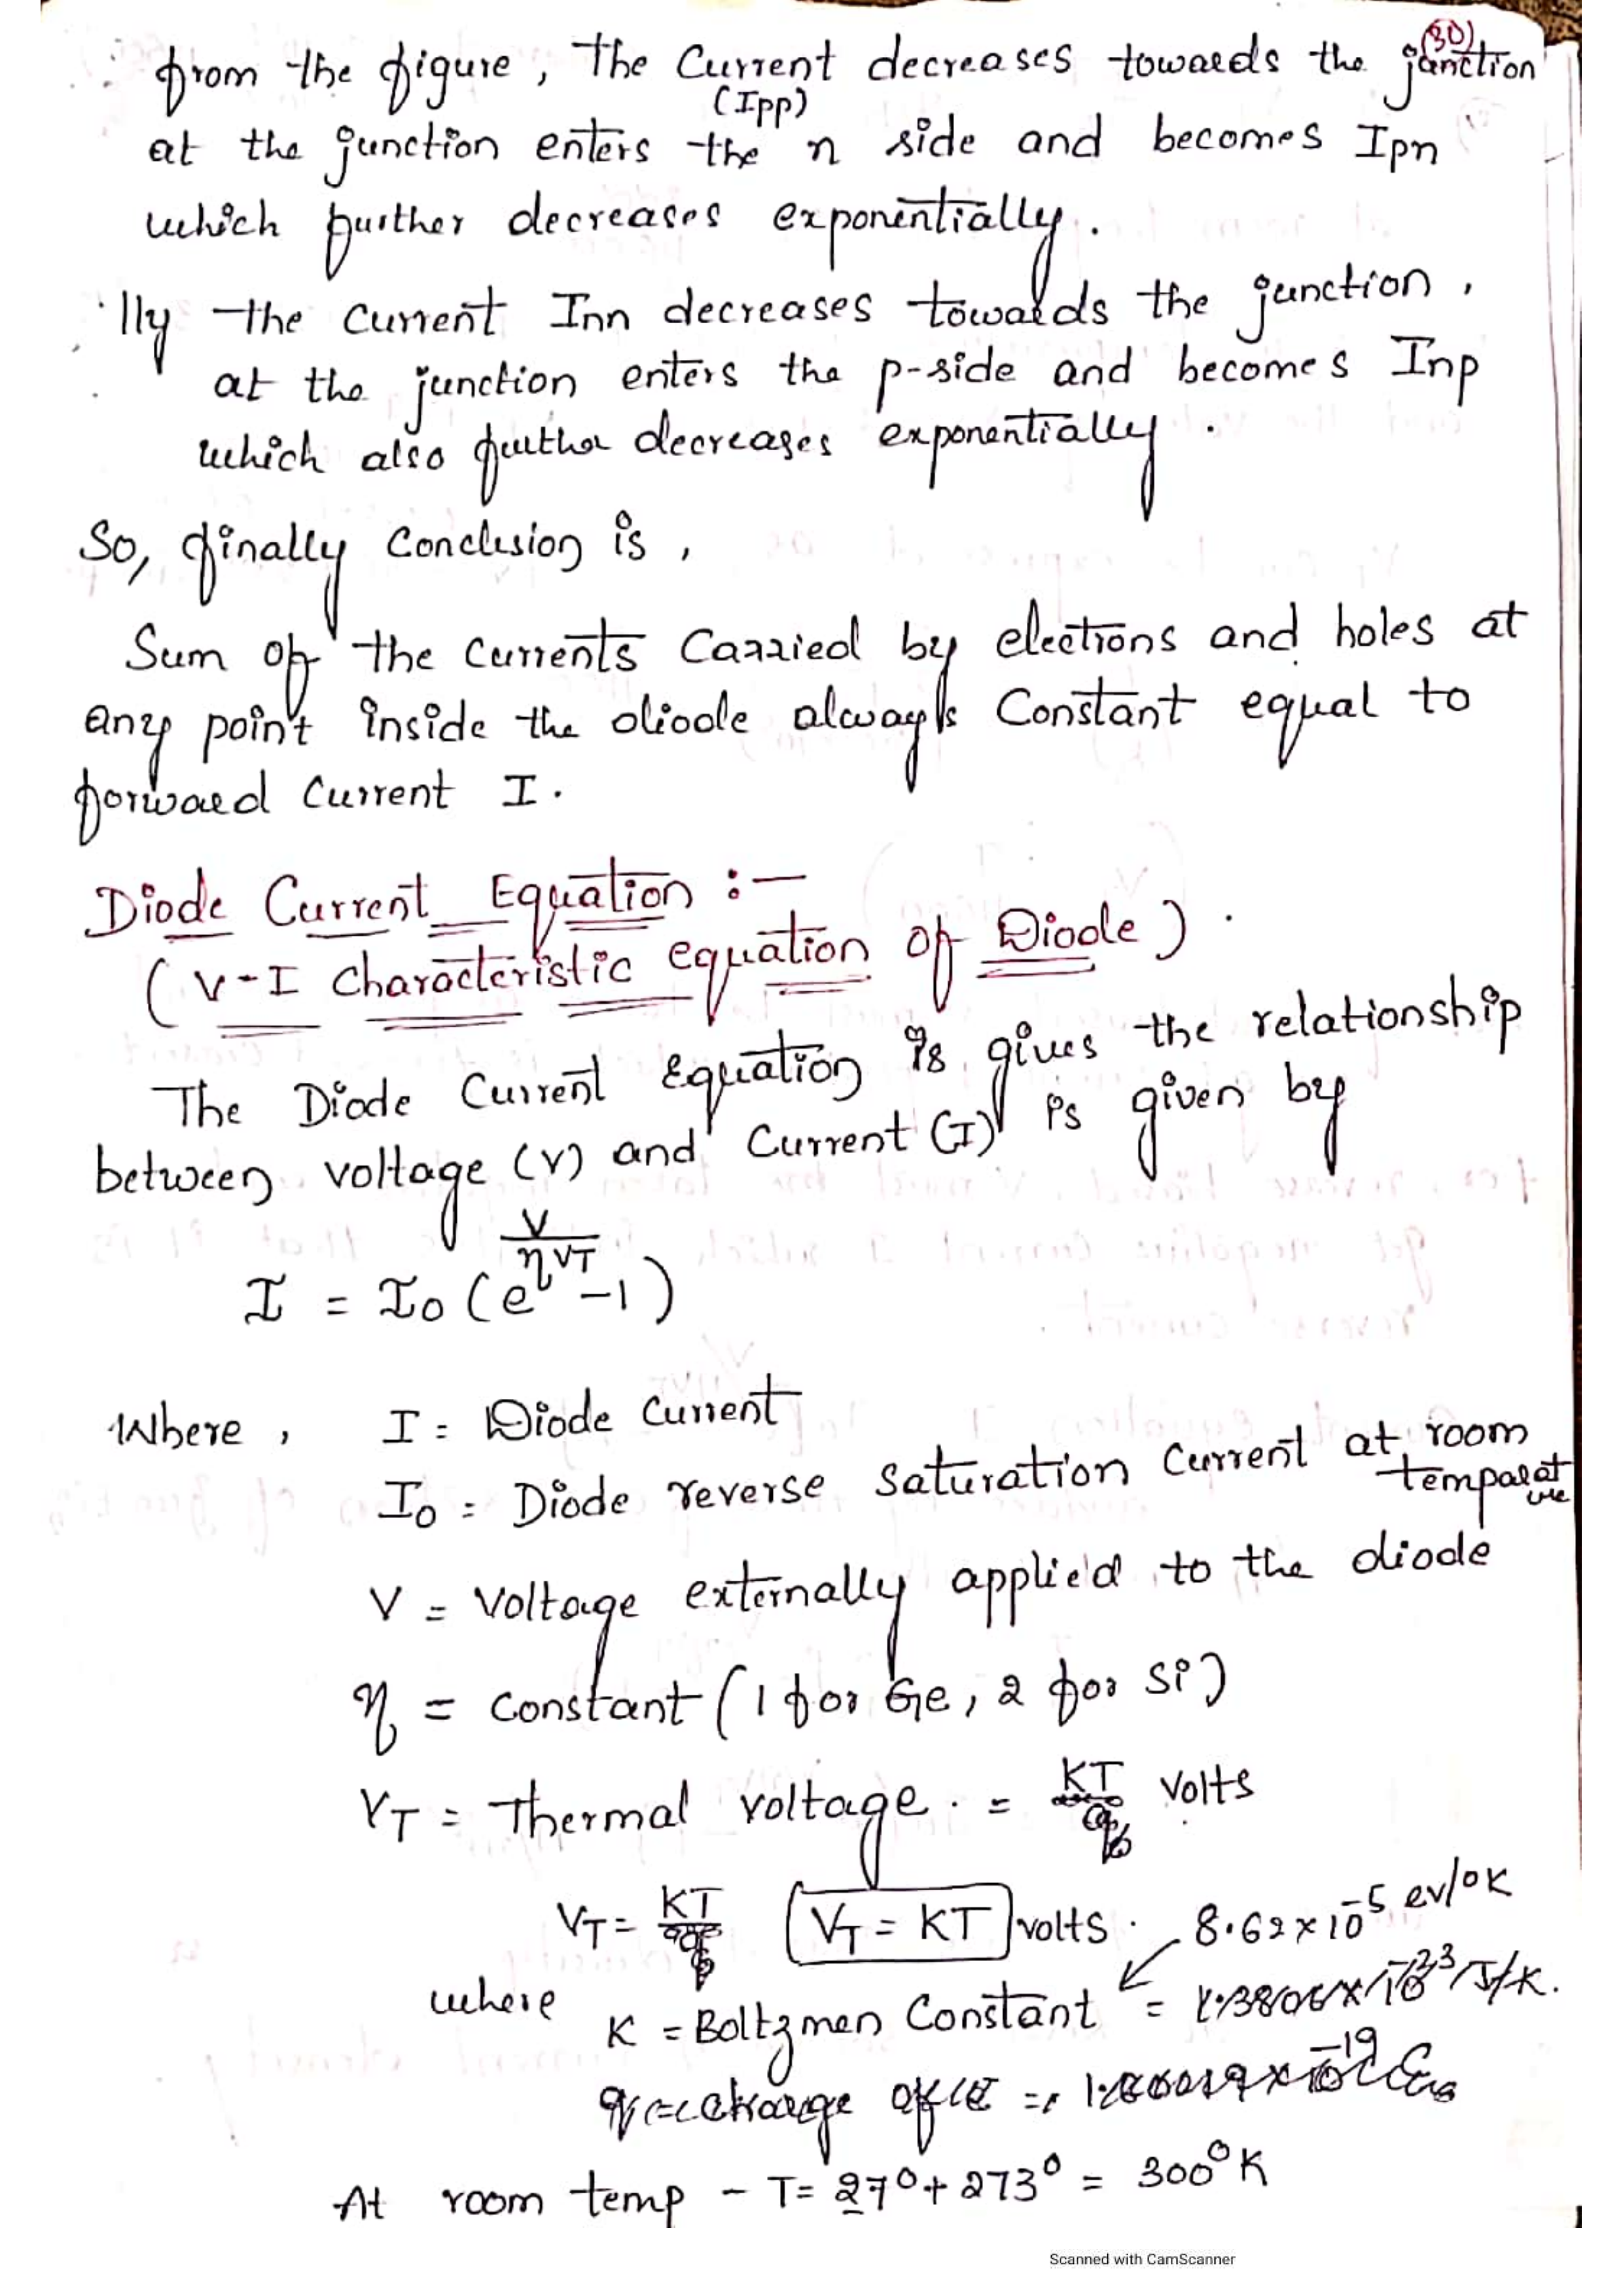 (30)
from the figure, the Current decreases towards the junction
(Ipp)
at the junction enters the n side and becomes Ipn
which further decreases exponentially.
'lly the current Inn decreases towards the junction,
at the junction enters the p-side and becomes Inp
which also further decreases exponentially.
So, finally Conclusion is,
Sum of the currents Carried by electrons and holes at
any point inside the diode always Constant equal to
forward Current I.
Diode Current Equation :-
(V-I Characteristic equation of Diode).
The Diode Current Equation is gives the relationship
between voltage (V) and Current (I) is given by
I = I0 (e^(V/ηVT) -1)
Where, I = Diode Current
I0 = Diode reverse saturation Current at room temparature
V = Voltage externally applied to the diode
η = Constant (1 for Ge, 2 for Si)
VT = Thermal voltage. = KT volts
VT = KT VT = KT volts. 8.62 x 10^-5 ev/°K
where K = Boltzmen Constant = 1.3806 x 10^-23 J/K.
q = charge of
At room temp - T= 27° + 273° = 300°K
Scanned with CamScanner